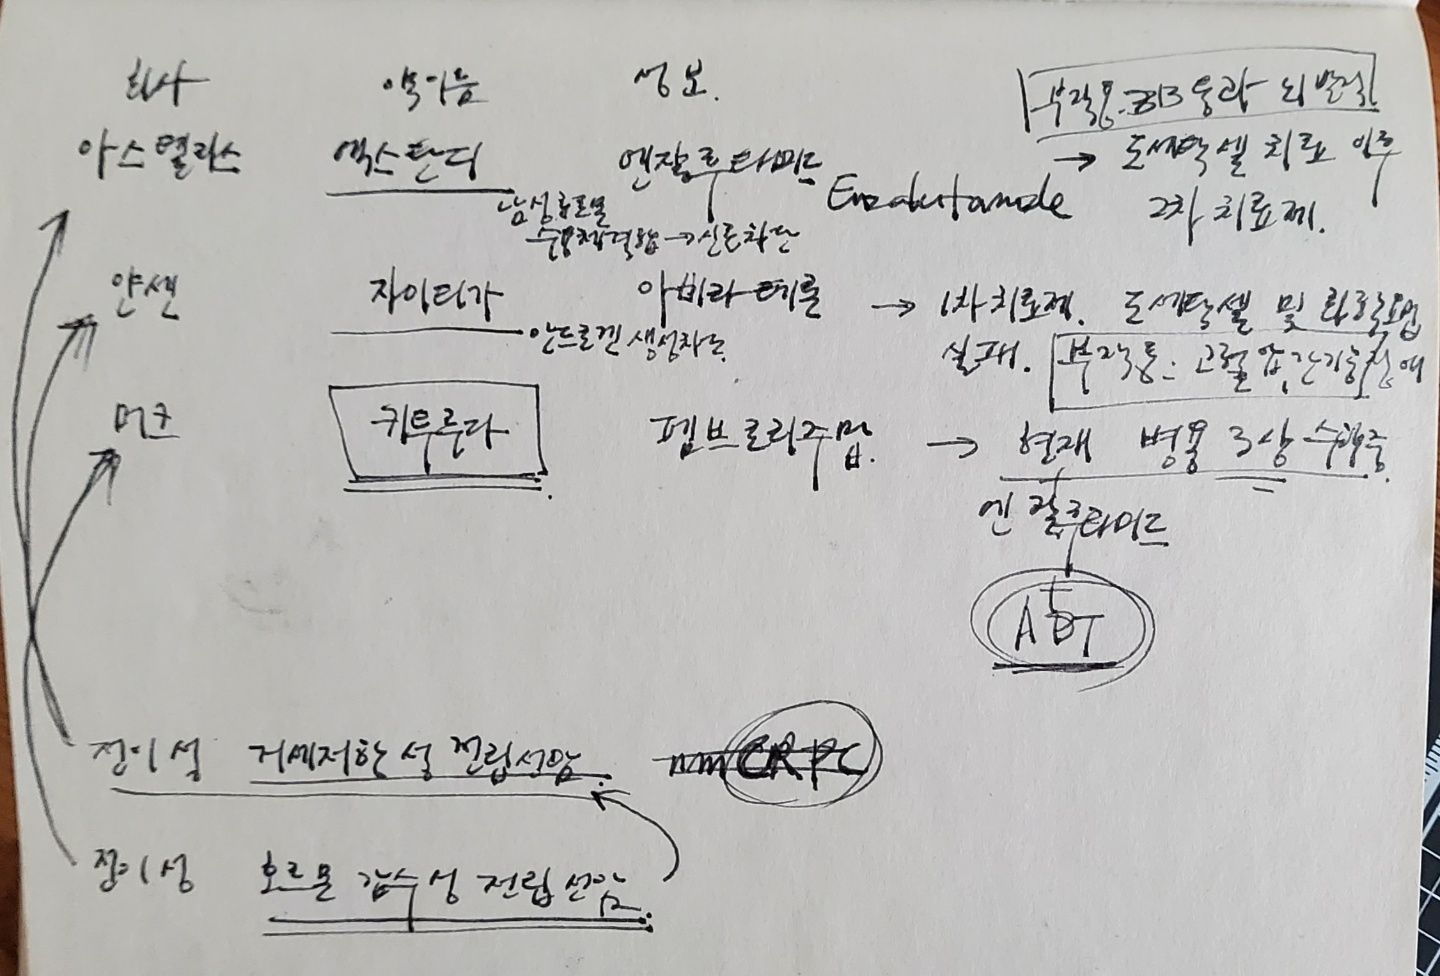 회사 약이름 정보.
부작용. BBB 통과 뇌 발작
아스텔라스 엑스탄디 엔잘루타미드 Enzalutamide → 도세탁셀 치료 이후
2차 치료제.
남성호르몬
수용체 결합 → 신호차단
얀센 자이티가 아비라테론 → 1차 치료제. 도세탁셀 및 화학요법
안드로겐 생성차단
실패. 부작용: 고혈압, 간기능
머크 키투루다 펨브로리주맙. → 현재 병용 3상 수행중.
엔잘루타미드
ADT
전이성 거세저항성 전립선암. CRPC
전이성 호르몬 감수성 전립선암.